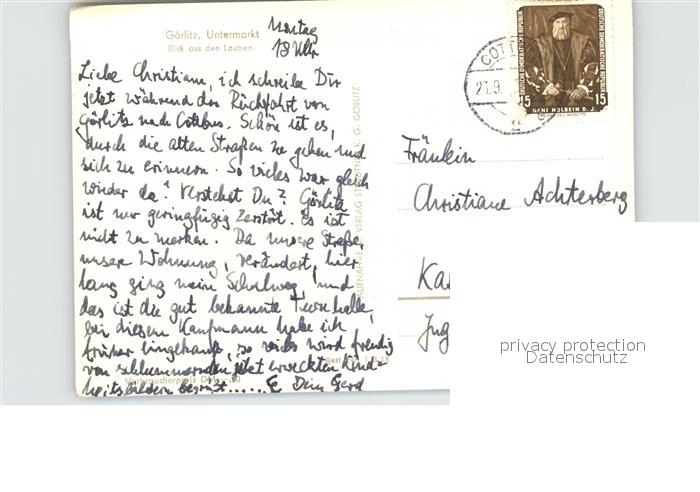 Görlitz, Untermarkt
Blick aus den Lauben
Montag
18 Uhr
Liebe Christiane, ich schreibe Dir
jetzt während der Rückfahrt von
Görlitz nach Cottbus. Schön ist es,
durch die alten Straßen zu gehen und
sich zu erinnern. So vieles war gleich
wieder da! Verstehst Du? Görlitz
ist nur geringfügig zerstört. Es ist
nicht zu merken. Da unsere Straße,
unsere Wohnung, verändert, hier
lang ging mein Schulweg, und
das ist die gut bekannte Turnhalle,
bei diesem Kaufmann habe ich
früher eingekauft, so vieles wird freudig
von schlummernden jetzt erweckten Kind=
heitsbildern begrüßt...... Dein Gerd
Verbraucherpreis
Best.
VERLAG K. G. GÖRLITZ
COTT
DEUTSCHE DEMOKRATISCHE REPUBLIK
DEUTSCHE DEMOKRATISCHE REPUBLIK
15 15
HANS HOLBEIN D. J.
Fräulein
Christiane Achterberg
Ka
Jug
privacy protection
Datenschutz